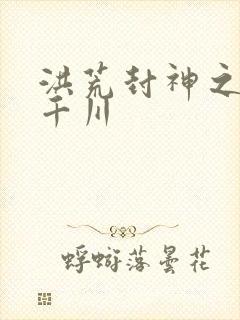 洪荒封神之
干川
蜉蝣落昙花